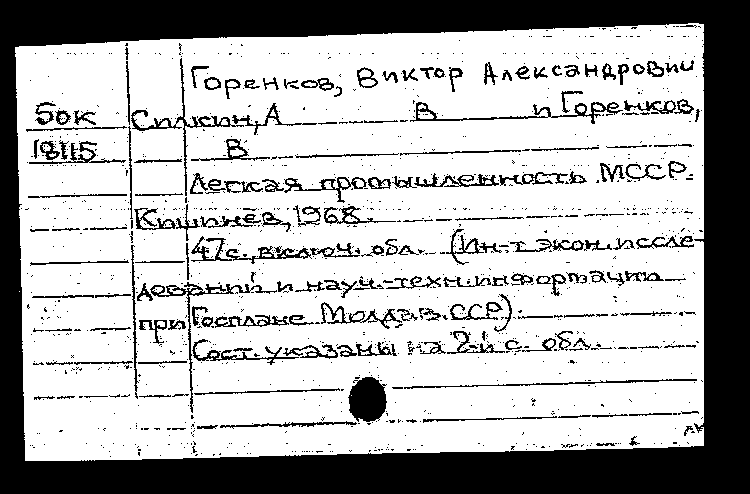 Горенков, Виктор Александрович
Бок Силкин, А В и Горенков,
18115 В
Легкая промышленность МССР.
Кишинев, 1968.
47с., включ. обл. (Ин-т экон. иссле-
дований и науч.-техн. информации
при Госплане Молдав. ССР).
Сост. указаны на 2-й с. обл.